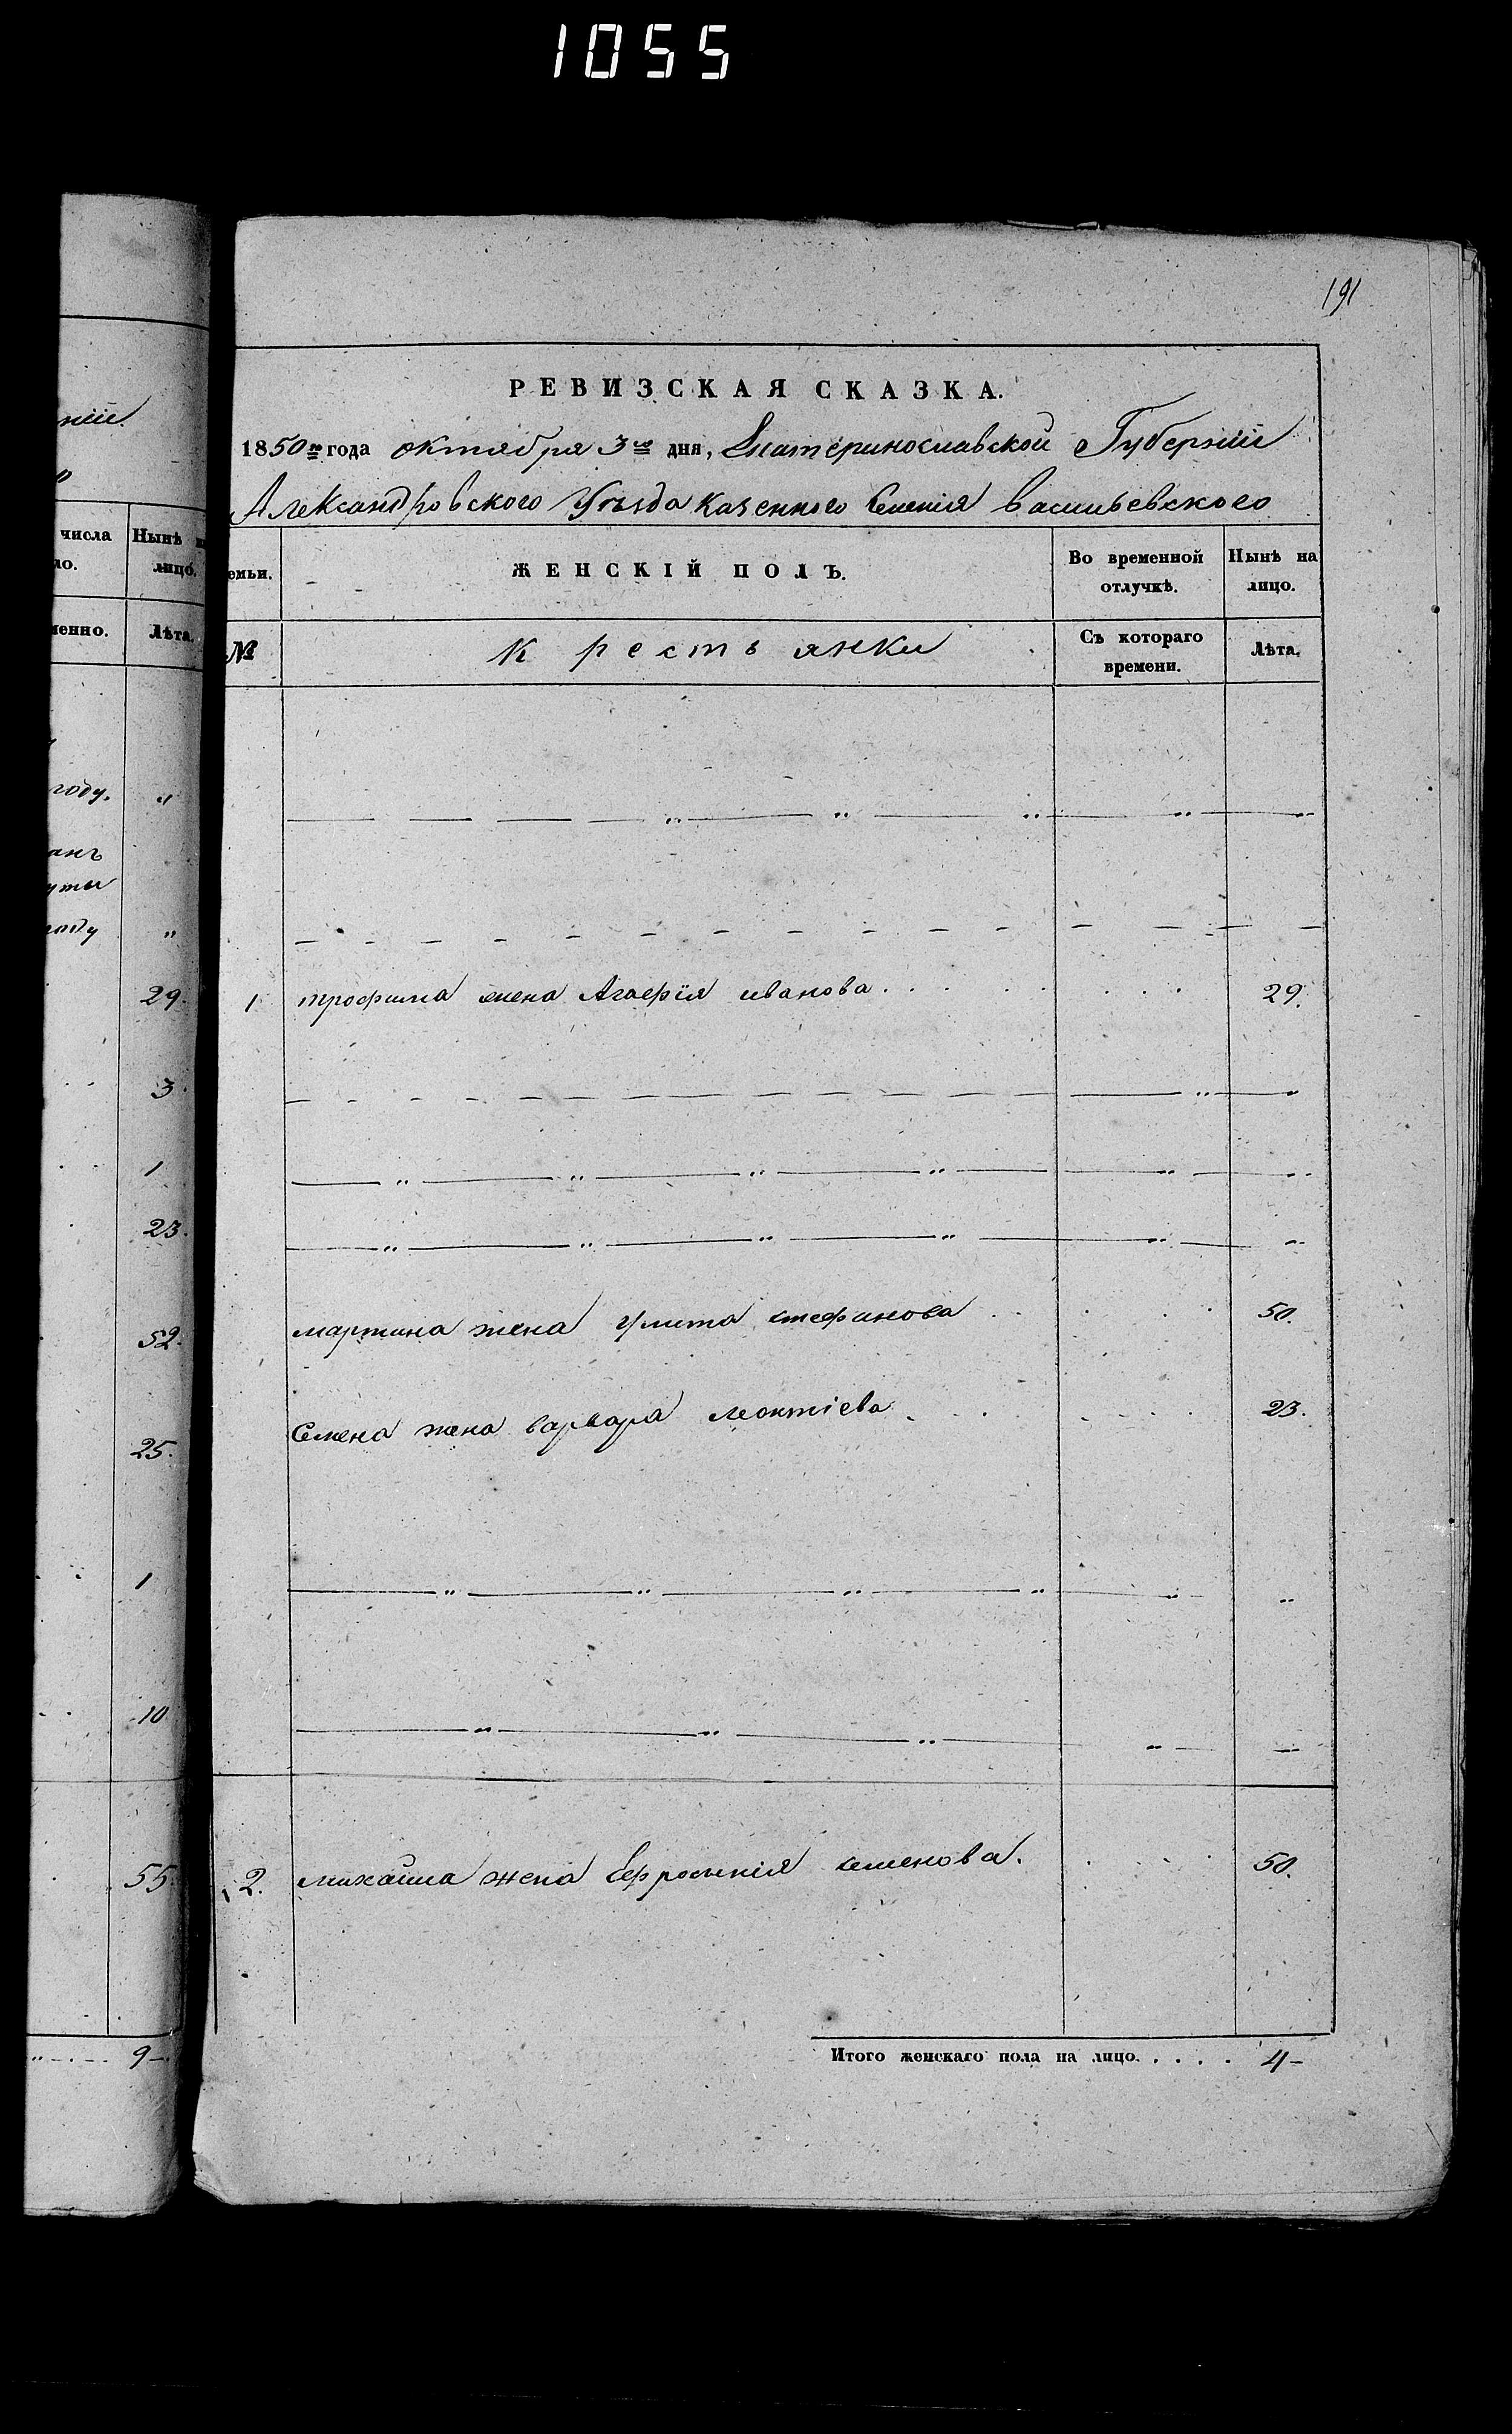 1055
191
РЕВИЗСКАЯ СКАЗКА.
1850го года октября 3го дня, Екатеринославской Губерніи
Александровского Уезда казенного Селенія васильевского
нiи.
числа
Нынѣ
лицо.
Лѣта.
году.
"
анъ
"
29.
3.
1
23.
52.
25.
1
10
55.
9-
емьи.
ЖЕНСКІЙ ПОЛЪ.
Во временной отлучкѣ.
Нынѣ на лицо.
№
Крестьянки
Съ котораго времени.
Лѣта.
1 трофима жена Агафія иванова 29.
мартина жена Улита стефанова 50.
Семена жена варвара леонтіева 23.
2. михаила жена Ефросинія семенова. 50.
Итого женскаго пола на лицо. . . . . 4-